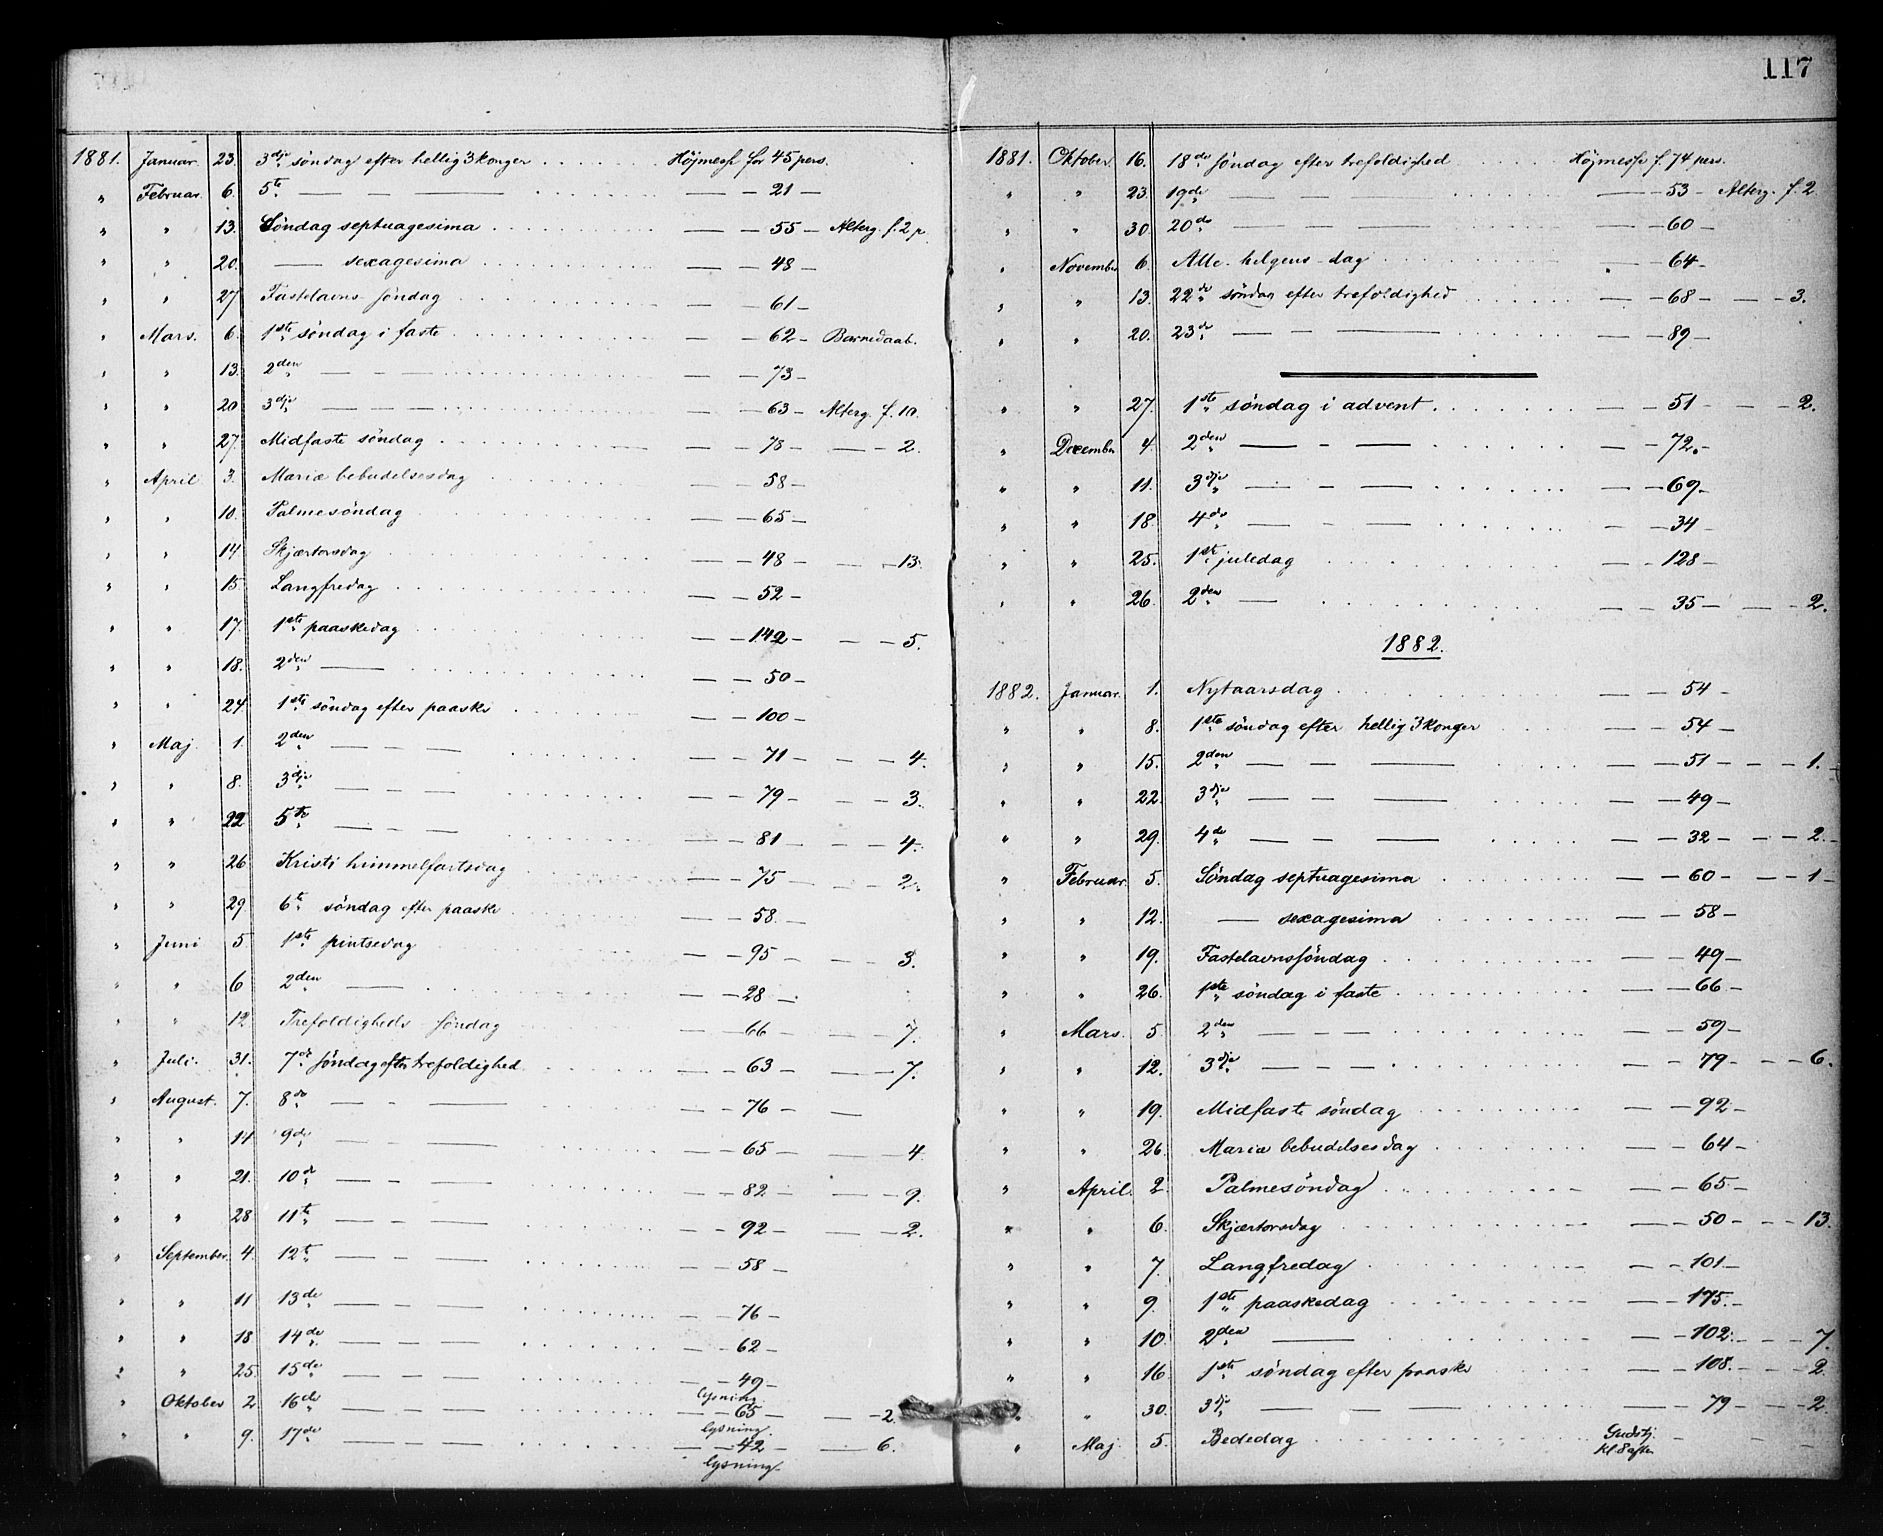 1881. Januar. 23. 3dje søndag efter hellig 3 konger . . . . . Højmesse for 45 pers.
" Februar. 6. 5te — — — — — 21 —
" " 13. Søndag septuagesima . . . . . — — 55 — Alterg. f. 2 p
" " 20. — sexagesima . . . . . — — 48 —
" " 27 Fastelavns-søndag . . . . . — — 61 —
" Mars. 6. 1ste søndag i faste . . . . . — — 62 — Barnedaab.
" " 13. 2den — — — . . . . . — — 73 —
" " 20 3dje — — — . . . . . — — 63 — Alterg. f. 10.
" " 27. Midfaste søndag . . . . . — — 78 — — — 2.
" April 3. Mariæ bebudelsesdag . . . . . — — 58 —
" " 10. Palmesøndag . . . . . — — 65 —
" " 14. Skjærtorsdag . . . . . — — 48 — — — 13.
" " 15. Langfredag . . . . . — — 52 —
" " 17. 1ste paaskedag . . . . . — — 142 — — — 5.
" " 18. 2den — . . . . . — — 50 —
" " 24. 1ste søndag efter paaske . . . . . — — 100 —
" Maj. 1. 2den — — — . . . . . — — 71 — — — 4.
" " 8. 3dje — — — . . . . . — — 79 — — — 3.
" " 22 5te — — — . . . . . — — 81 — — — 4.
" " 26 Kristi himmelfartsdag . . . . . — — 75 — — — 2.
" " 29 6te søndag efter paaske . . . . . — — 58 —
" Juni 5 1ste pintsedag . . . . . — — 95 — — — 3.
" " 6 2den — . . . . . — — 28 —
" " 12 Trefoldigheds-søndag . . . . . — — 66 — — — 7.
" Juli. 31. 7de søndag efter trefoldighed . . . . . — — 63 — — — 7.
" August. 7. 8de — — — . . . . . — — 76 — —
" " 14 9de — — — . . . . . — — 65 — — — 4
" " 21. 10de — — — . . . . . — — 82 — — — 9.
" " 28 11te — — — . . . . . — — 92 — — — 2.
" September. 4. 12te — — — . . . . . — — 58 —
" " 11 13de — — — . . . . . — — 76 —
" " 18 14de — — — . . . . . — — 62 —
" " 25. 15de — — — . . . . . — — 49 —
lysning
" Oktober 2 16de — — — . . . . . — — 65 — — — 2.
lysning.
" " 9. 17de — — — . . . . . — — 42 — — — 6.
lysning.
117
1881. Oktober. 16. 18de søndag efter trefoldighed . . . . . Højmesse f. 74 pers.
" " 23. 19de — — — . . . . . — — 53 — Alterg. f. 2.
" " 30. 20de — — — . . . . . — — 60 —
" November 6. Alle-helgens-dag . . . . . — — 64 —
" " 13. 22de søndag efter trefoldighed . . . . . — — 68 — — — 3.
" " 20. 23de — — — . . . . . — — 89 —
" " 27. 1ste søndag i advent . . . . . — — 51 — — — 2.
" December 4. 2den — — — . . . . . — — 72 —
" " 11. 3dje — — — . . . . . — — 69 —
" " 18. 4de — — — . . . . . — — 34 —
" " 25. 1ste juledag . . . . . — — 128 —
" " 26. 2den — . . . . . — — 35 — — — 2.
1882.
1882. Januar. 1. Nytaarsdag . . . . . — — 54 —
" " 8. 1ste søndag efter hellig 3 konger . . . . . — — 54 —
" " 15. 2den — — — . . . . . — — 51 — — — 1.
" " 22. 3dje — — — . . . . . — — 49 —
" " 29. 4de — — — . . . . . — — 32 — — — 2.
" Februar. 5. Søndag septuagesima . . . . . — — 60 — — — 1 —
" " 12. — sexagesima . . . . . — — 58 —
" " 19. Fastelavnssøndag . . . . . — — 49 —
" " 26. 1ste søndag i faste . . . . . — — 66 —
" Mars. 5. 2den — — — . . . . . — — 59 —
" " 12. 3dje — — — . . . . . — — 79 — — — 6.
" " 19. Midfaste søndag . . . . . — — 92 —
" " 26. Mariæ bebudelsesdag . . . . . — — 64 —
" April. 2. Palmesøndag . . . . . — — 65 —
" " 6. Skjærtorsdag . . . . . — — 50 — — — 13.
" " 7. Langfredag . . . . . — — 101 —
" " 9. 1ste paaskedag . . . . . — — 175. —
" " 10. 2den — . . . . . — — 102. — — — 7.
" " 16 1ste søndag efter paaske . . . . . — — 108. — — — 2.
" " 30. 3dje — — — . . . . . — — 79 — — — 2.
" Maj. 5. Bededag . . . . . Gudstj. — — —
Kl. 8 aften